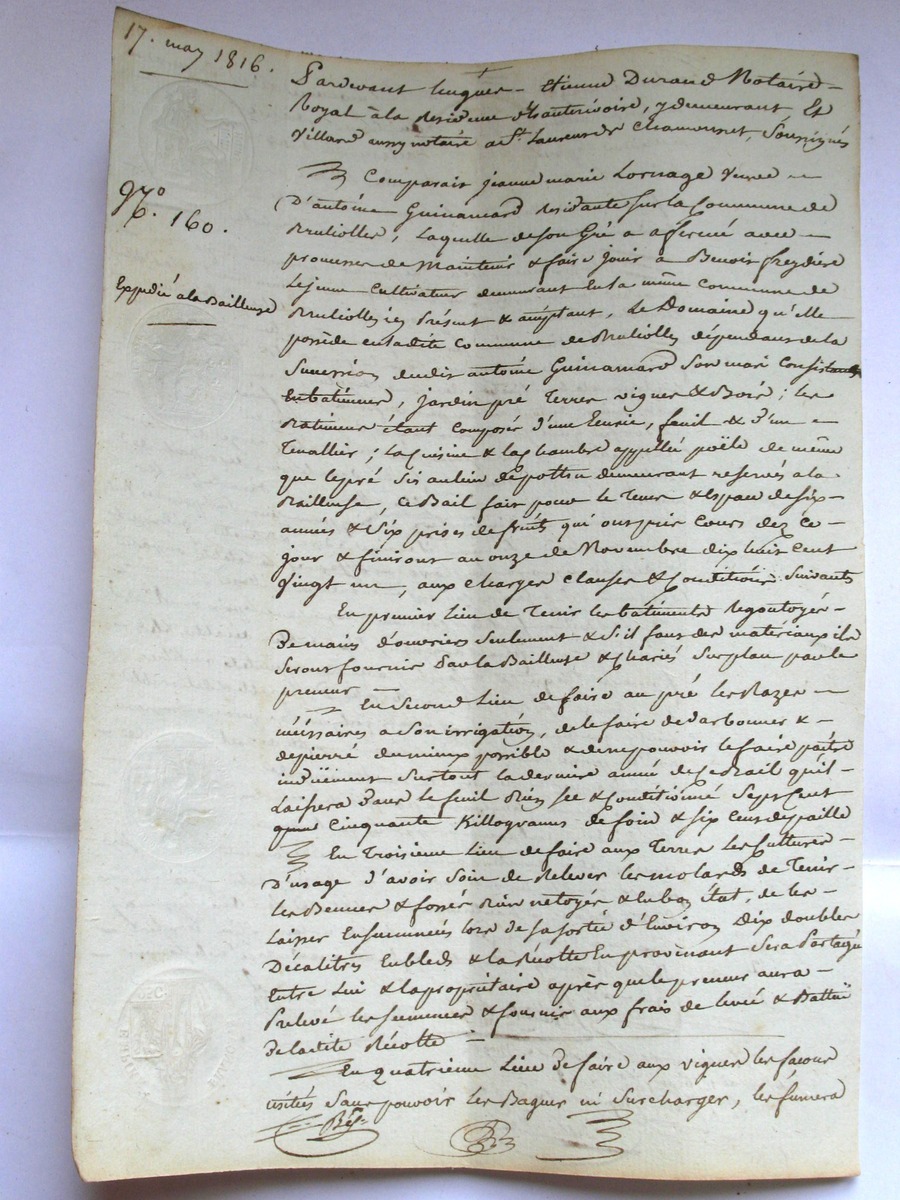 17. may 1816.
97º
6. 160.
Expedié à la Bailleuse
Pardevant Etienne Durand Notaire
Royal à la résidence d'hauterivoire, y demeurant Et
Villard aussy notaire a St. Laurent de Chamousset, Soussignés
Comparait jeanne marie Lornage veuve
D'antoine Guinamard residante sur la Commune de
Brulliolles, Laquelle de son Gré a affermé avec
promesse de Maintenir & faire jouir à Benoit freydiere
Le jeune Cultivateur demeurant En la même Commune de
Brulliolles ici Présent & acceptant, Le Domaine qu'elle
possède en ladite Commune de Brulliolles dépendant de la
Succession dudit antoine Guinamard Son mari Consistant
En batiments, jardin pré Terres vignes & Bois; les
Batiments étant Composés d'une Ecurie, fenil & d'un
Tenallier; La Cuisine & la chambre appellée poële de même
que le pré Sis au lieu de demeurant reservés a la
Bailleuse, Ce Bail fait pour le Tems & Espace de six
années & Six prises de fruits qui ont pris Cours dez Ce
jour & finiront au onze de Novembre dix huit Cent
Vingt un, aux Charges Clauses & Conditions Suivants
En premier Lieu de Tenir les batiments Regoutoyés
De mains d'ouvriers Seulement & S'il faut des matériaux ils
Seront fournis Par la Bailleuse & chariés Sur place par le
preneur En Second Lieu de faire au pré les Razes
nécessaires a Son irrigation, de le faire &
depierré du mieux possible & de ne pouvoir le faire paitre
Surtout la dernière année de Ce Bail qu'il
Laissera Dans le fenil Bien Sec & Conditionné Sept Cent
Cinquante Killogrames de foin & Six Cent de paille
En Troisieme Lieu de faire aux Terres les Cultures
D'usage d'avoir Soin de Relever les molards de Tenir
Les & fossés Bien netoyés & En bon état, de les
Laisser Ensemencés lors de Sa Sortie d'Environ Dix doubles
Décalitres En bleds & la Récolte En provenant Sera Partagée
Entre Lui & la propriétaire après que le preneur aura
Prelevé les Semences & fournir aux frais de levée & Battue
De ladite Récolte
En quatrieme Lieu de faire aux vignes les facons
usitées Sans pouvoir les ni Surcharger, les fumera